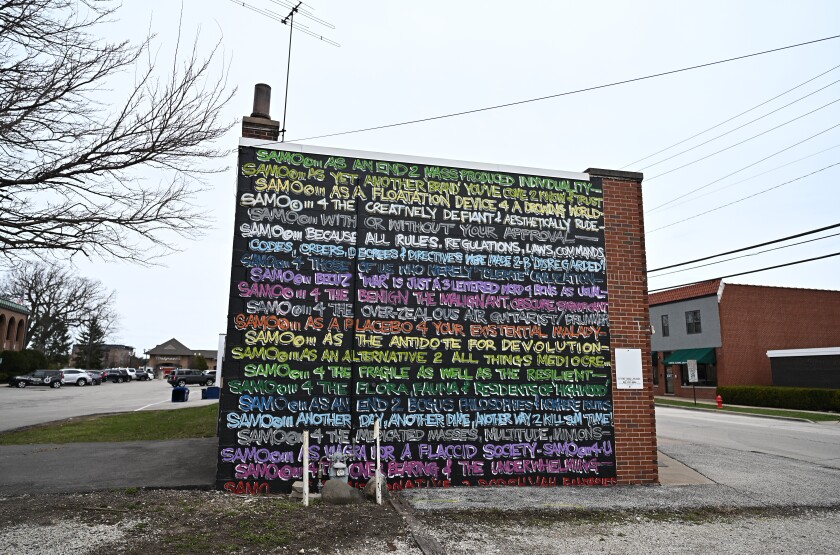 SAMO©!!! AS AN END 2 MASS PRODUCED INDIVIDUALITY—
SAMO©!!! AS YET ANOTHER BRAND YOU'VE COME 2 KNOW & TRUST
SAMO©!!! AS A FLOATATION DEVICE 4 A DROWNING WORLD-
SAMO©!!! 4 THE CREATIVELY DEFIANT & AESTHETICALLY RUDE—
SAMO©!!! WITH OR WITHOUT YOUR APPROVAL—
SAMO©!!! BECAUSE ALL RULES, REGULATIONS, LAWS, COMMANDS,
CODES, ORDERS, DECREES & DIRECTIVES WERE MADE 2 B DISREGARDED!
SAMO©!!! 4 THOSE OF US WHO MERELY
SAMO©!!! "WAR" IS JUST A 3 LETTERED WORD
SAMO©!!! 4 THE BENIGN THE MALIGNANT, OBSCURE
SAMO©!!! 4 THE OVER-ZEALOUS AIR GUITARIST/DRUMMER
SAMO©!!! AS A PLACEBO 4 YOUR EXISTENTIAL MALADY—
SAMO©!!! AS THE ANTIDOTE FOR DEVOLUTION—
SAMO©!!! AS AN ALTERNATIVE 2 ALL THINGS MEDIOCRE...
SAMO©!!! 4 THE FRAGILE AS WELL AS THE RESILIENT—
SAMO©!!! 4 THE FLORA FAUNA & RESIDENTS OF HIGHWOOD
SAMO©!!! AS AN END 2 BOGUS PHILOSOPHIES & NOWHERE
SAMO©!!! ANOTHER DAY, ANOTHER DIME, ANOTHER WAY 2 KILL SUM TIME
SAMO©!!! 4 THE MEDICATED MASSES, MULTITUDE, MINIONS—
SAMO©!!! AS VIAGRA FOR A FLACCID SOCIETY-SAMO©4-U
SAMO©!!! 4 THE OVER BEARING & THE UNDERWHELMING—
SAMO©!!!